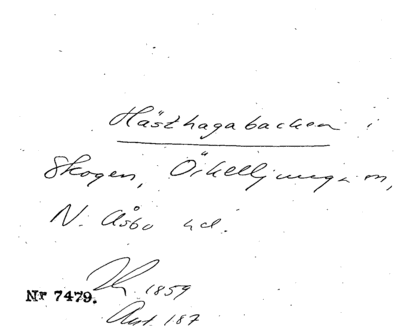 Hästhagabacken i
Skogen, Örkelljunga sn,
N. Åsbo hd.
1859
Nr 7479.
Ant. 187